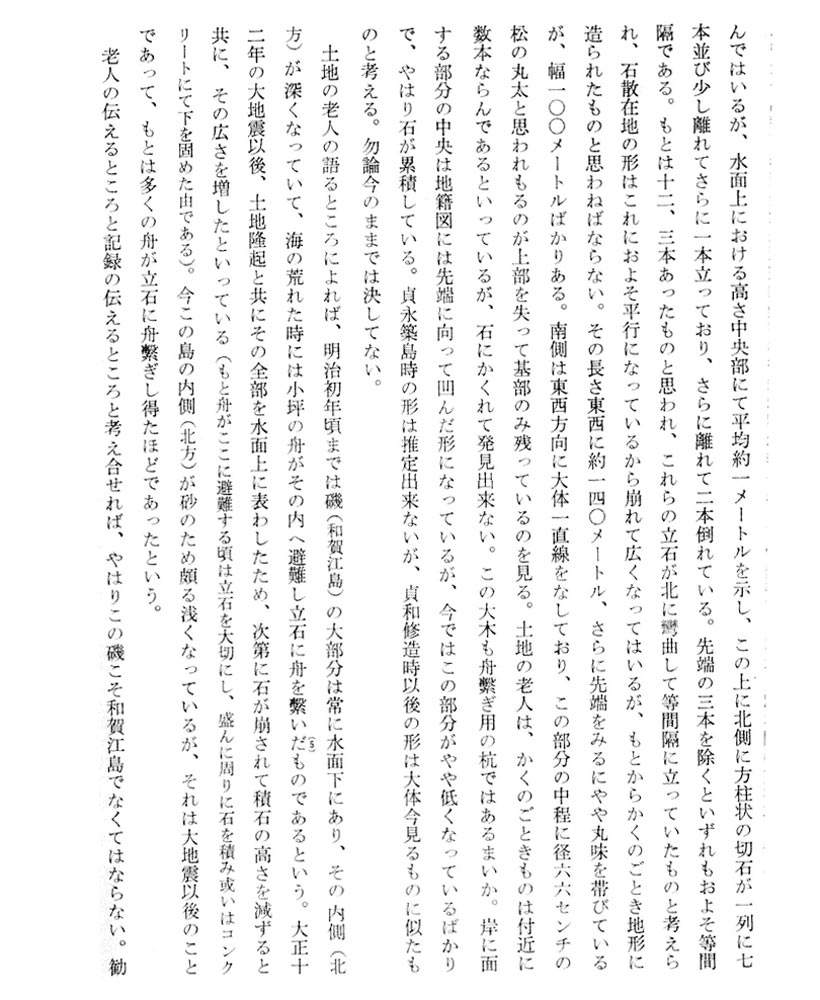 んではいるが、水面上における高さ中央部にて平均約一メートルを示し、この上に北側に方柱状の切石が一列に七
本並び少し離れてさらに一本立っており、さらに離れて二本倒れている。先端の三本を除くといずれもおよそ等間
隔である。もとは十二、三本あったものと思われ、これらの立石が北に彎曲して等間隔に立っていたものと考えら
れ、石散在地の形はこれにおよそ平行になっているから崩れて広くなってはいるが、もとからかくのごとき地形に
造られたものと思わねばならない。その長さ東西に約一四〇メートル、さらに先端をみるにやや丸味を帯びている
が、幅一〇〇メートルばかりある。南側は東西方向に大体一直線をなしており、この部分の中程に径六六センチの
松の丸太と思われもるのが上部を失って基部のみ残っているのを見る。土地の老人は、かくのごときものは付近に
数本ならんであるといっているが、石にかくれて発見出来ない。この大木も舟繫ぎ用の杭ではあるまいか。岸に面
する部分の中央は地籍図には先端に向って凹んだ形になっているが、今ではこの部分がやや低くなっているばかり
で、やはり石が累積している。貞永築島時の形は推定出来ないが、貞和修造時以後の形は大体今見るものに似たも
のと考える。勿論今のままでは決してない。
土地の老人の語るところによれば、明治初年頃までは磯（和賀江島）の大部分は常に水面下にあり、その内側（北
方）が深くなっていて、海の荒れた時には小坪の舟がその内へ避難し立石に舟を繫いだ(5)ものであるという。大正十
二年の大地震以後、土地隆起と共にその全部を水面上に表わしたため、次第に石が崩されて積石の高さを減ずると
共に、その広さを増したといっている（もと舟がここに避難する頃は立石を大切にし、盛んに周りに石を積み或いはコンク
リートにて下を固めた由である）。今この島の内側（北方）が砂のため頗る浅くなっているが、それは大地震以後のこと
であって、もとは多くの舟が立石に舟繫ぎし得たほどであったという。
老人の伝えるところと記録の伝えるところと考え合せれば、やはりこの磯こそ和賀江島でなくてはならない。勧